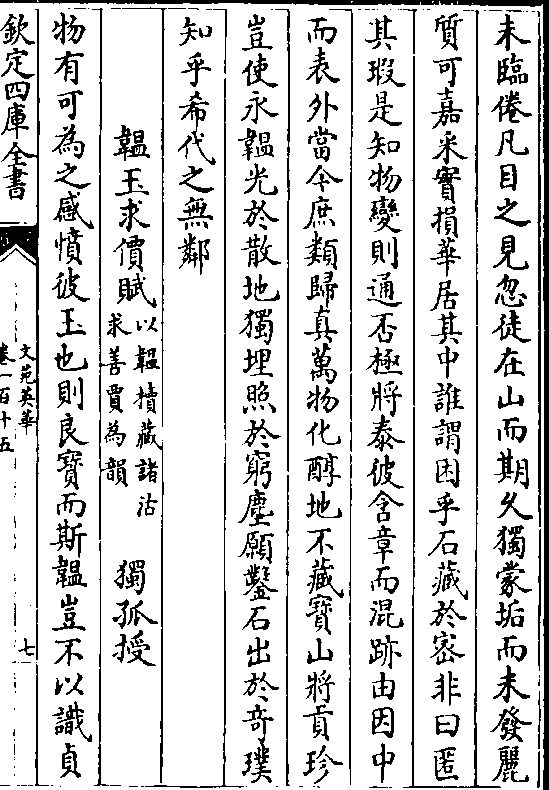 未臨倦凡目之見忽徒在山而期久獨蒙垢而未發麗
質可嘉采實損華居其中誰謂困乎石藏於密非曰匿
其瑕是知物變則通否極將泰彼含章而混跡由因中
而表外當今庶類歸真萬物化醇地不藏寶山將貢珍
豈使永韞光於散地獨埋照於窮塵願鑿石出於奇璞
知乎希代之無鄰
韞玉求價賦以韞櫝藏諸沽求善賈為韻 獨孤授
物有可為之感憤彼玉也則良寶而斯韞豈不以識貞
欽定四庫全書
文苑英華
卷一百十五
七